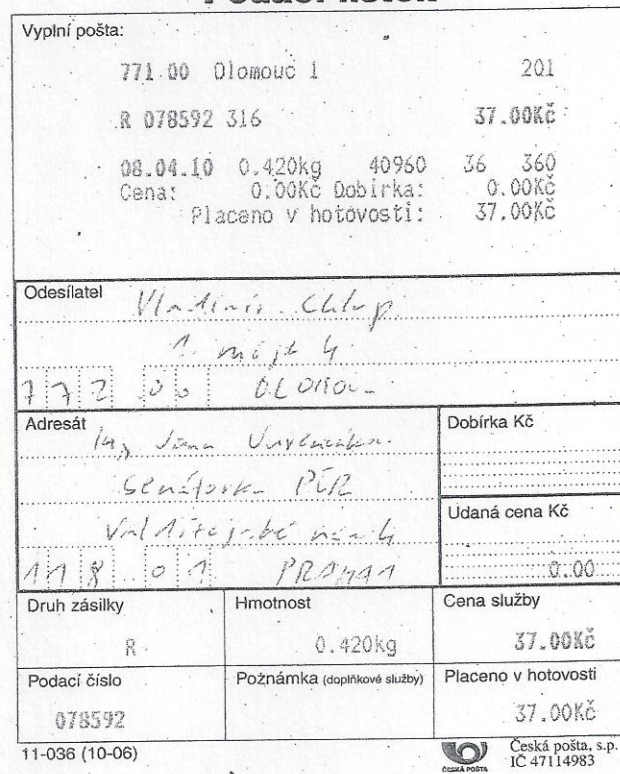 Podací lístek
Vyplní pošta:
771 00 Olomouc 1 201
R 078592 316 37.00Kč
08.04.10 0.420kg 40960 36 360
Cena: 0.00Kč Dobírka: 0.00Kč
Placeno v hotovosti: 37.00Kč
Odesílatel Vladimír Chlup
1. máje 4
772 00
Adresát Ing. Jana
Senátorka PČR
nám 4
118 01 PRAHA 1
Dobírka Kč
Udaná cena Kč
0.00
Druh zásilky Hmotnost Cena služby
R 0.420kg 37.00Kč
Podací číslo Poznámka (doplňkové služby) Placeno v hotovosti
078592 37.00Kč
11-036 (10-06) ČESKÁ POŠTA Česká pošta, s.p.
IČ 47114983